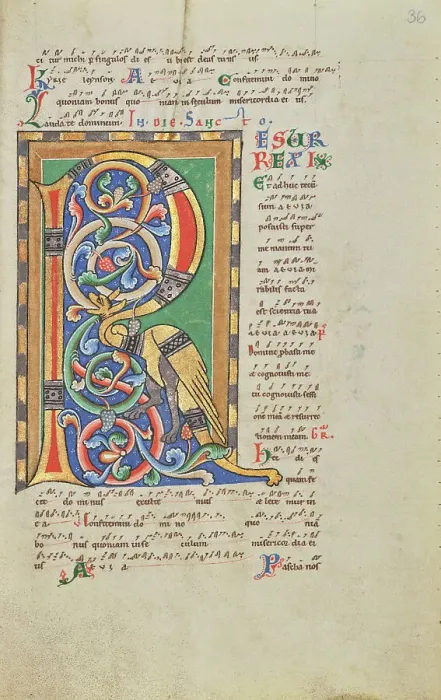 36
ci tur michi p singulos di es u bi est deus tu us us.
Kyrie leyson. A e u a Confitemini do mino
quoniam bonus quo niam in seculum misericordia ei us.
Laudate dominum. IN DIE SANCTO.
RESUR
REXI
Et adhuc tecũ
sum aeuia
posuisti super
me manum tu
am aeuia mi
rabilis facta
est scientia tua
aeuia aeuia. P
Domine pbasti me
et cognouisti me
tu cognouisti sessi
onẽ meã et resurrec
tionem meam. GR.
Hec di es
quam fe
cit do mi nus exulte mus et lete mur in
e a. Confitemini do mi no quo nia
bo nus quoniam in se culum misericor dia ei
us A e u i a Pascha nos